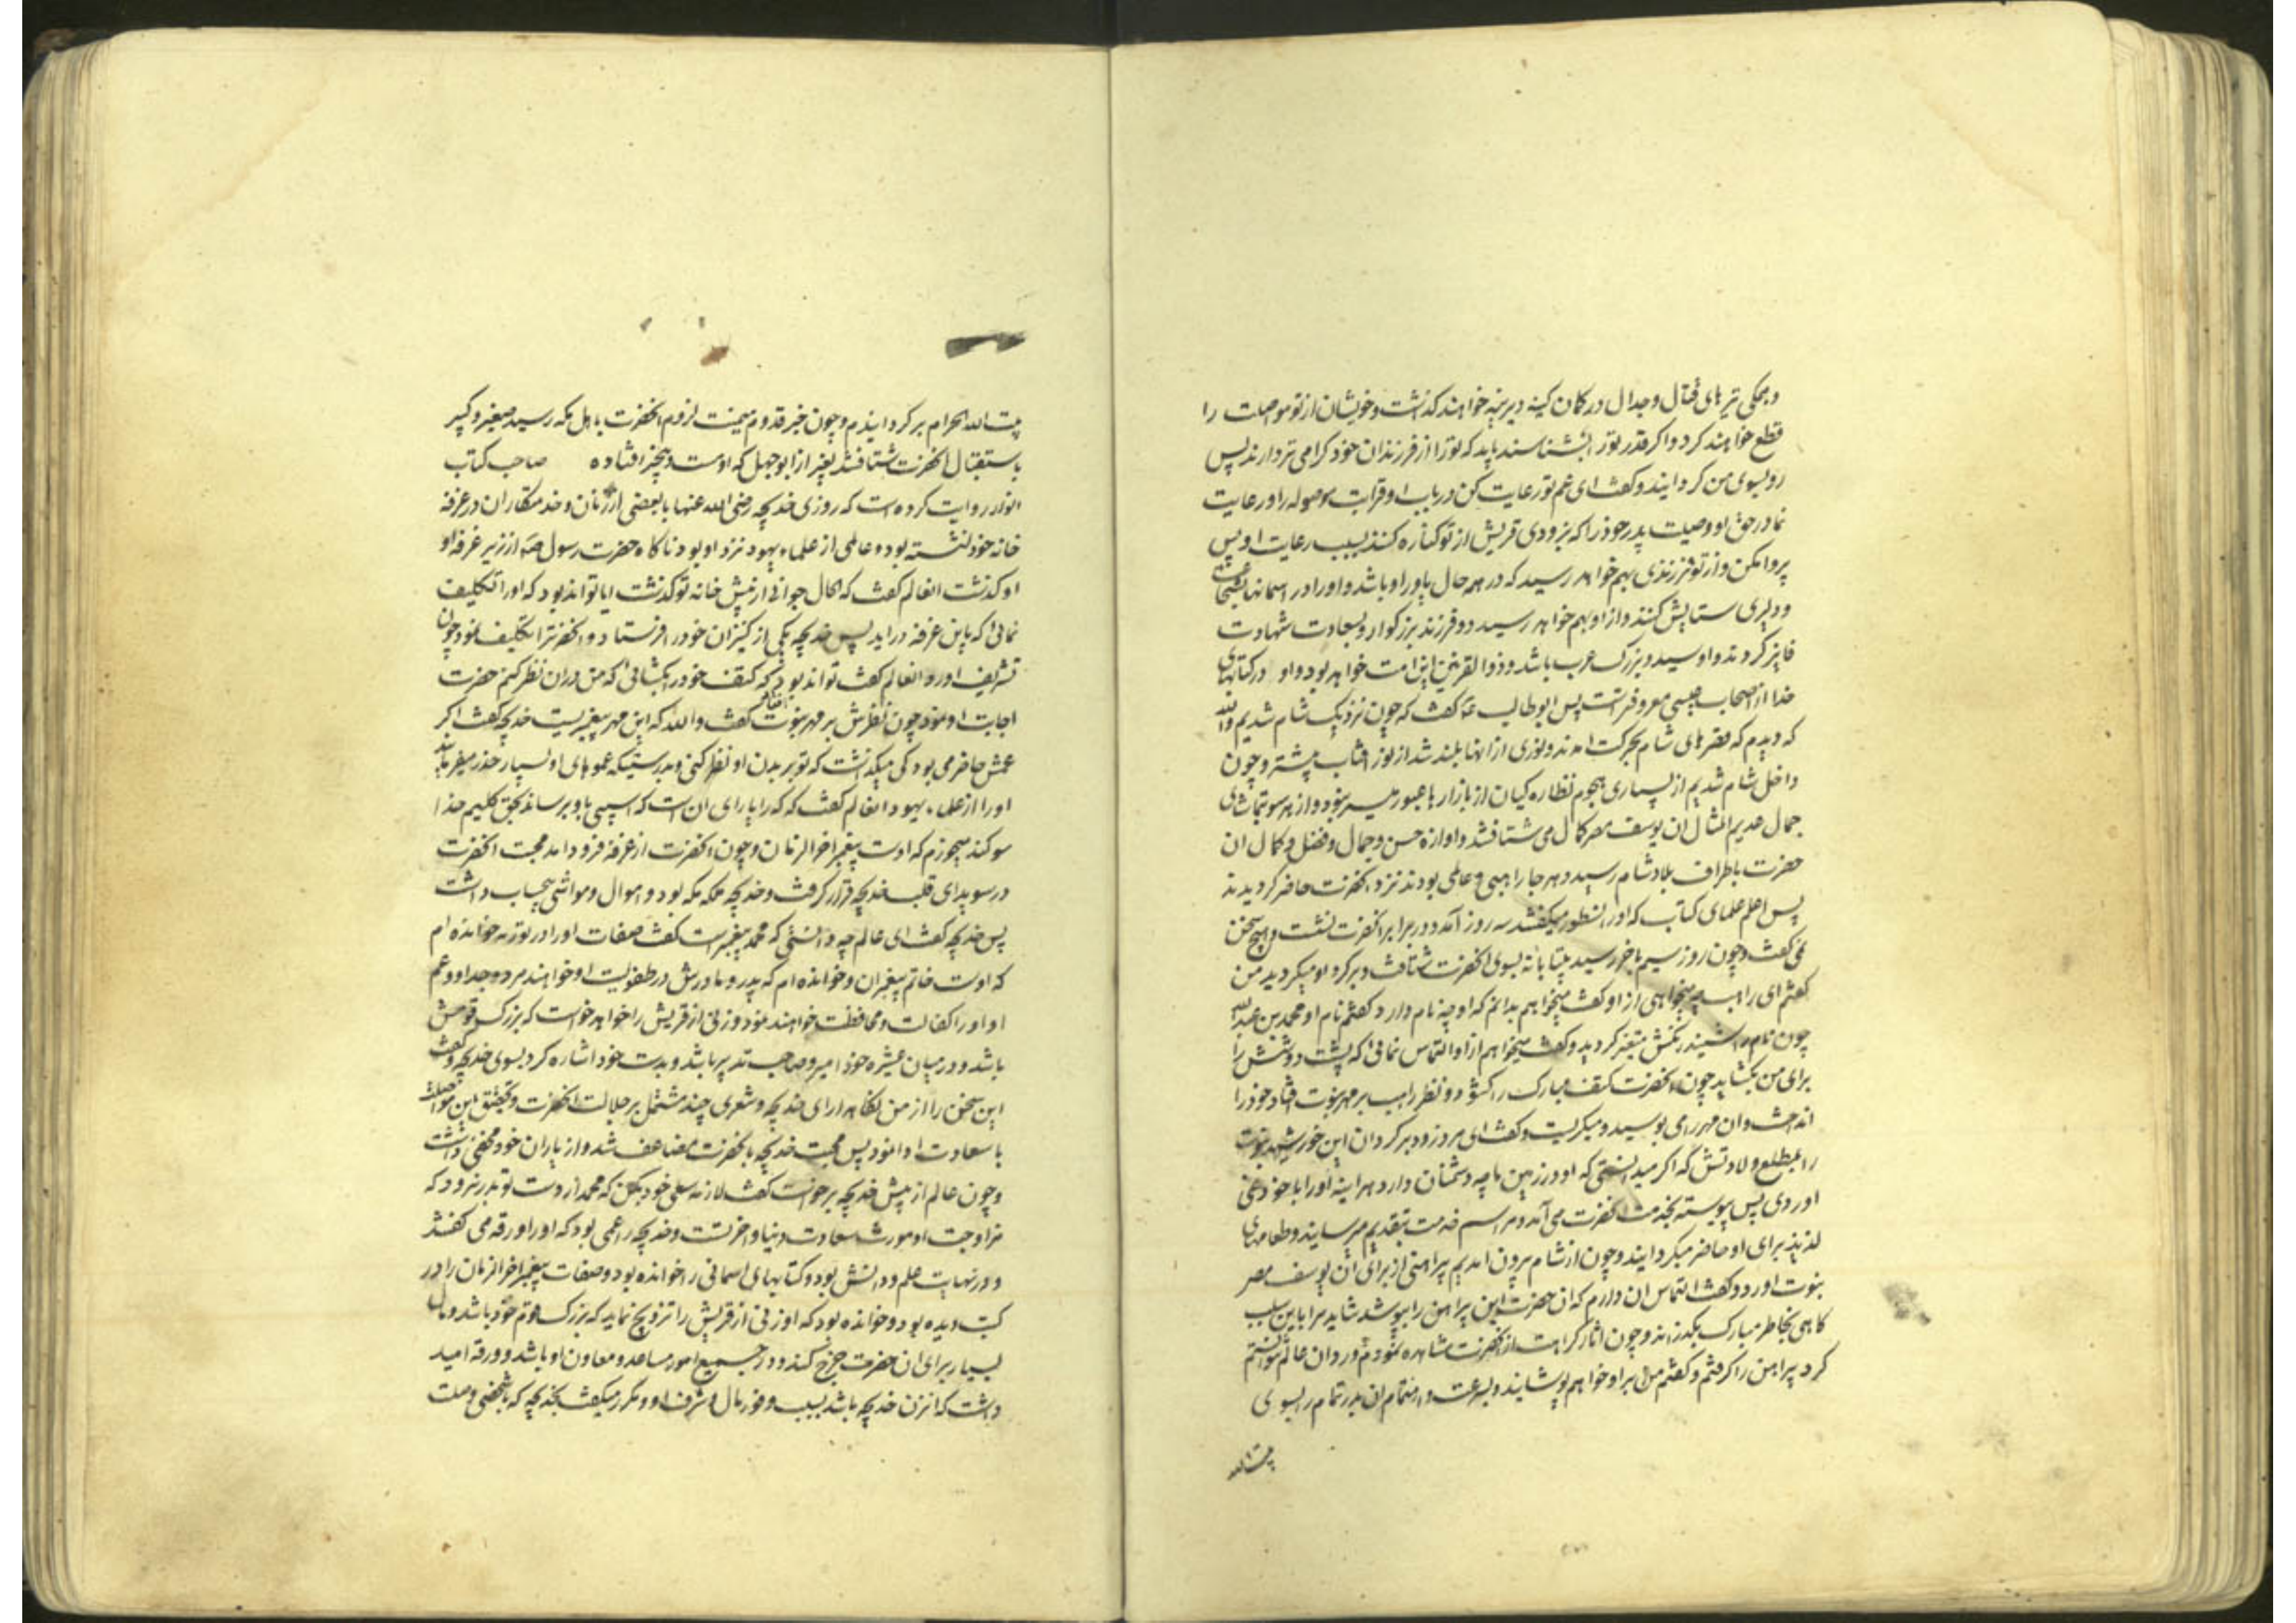 و همکی تیرهای قتال و جدال در کمان کینه دیرینه خواهند کذاشت و خویشان از تو مواصلت را
قطع خواهند کرد و اکر قدر تو را بشناسند باید که تو را از فرزندان خود کرامی تر دارند پس
رو بسوی من کردانید و کفت ای عم تو رعایت کن در باب او قرابت موصوله را و رعایت
نما در حق او وصیت پدر خود را که بزودی قریش از تو کناره کنند بسبب رعایت او پس
پروا مکن و از تو فرزندی بهم خواهد رسید که در همه حال یاور او باشد و او را در اسمانها بشجاعت
و دلیری ستایش کنند و از او بهم خواهد رسید دو فرزند بزرکوار و بسعادت شهادت
فایز کردند و او سید و بزرک عرب باشد و ذوالقرنین این امت خواهد بود و او در کتابهای
خدا از اصحاب عیسی معروفتر است پس ابوطالب ع کفت که چون نزدیک شام شدیم والله
که دیدم که قصرهای شام بحرکت امدند و نوری از انها بلند شد از نور افتاب بیشتر و چون
داخل شام شدیم از بسیاری هجوم نظاره کیان از بازارها عبور میسر نبود و از هر سو بتماشای
جمال عدیم المثال ان یوسف مصر کمال می شتافتند و اوازه حسن و جمال و فضل و کمال ان
حضرت باطراف بلاد شام رسید و هر جا راهبی و عالمی بودند نزد انحضرت حاضر کردیدند
پس اعلم علمای کتاب که او را نسطور میکفتند سه روز آمد و در برابر انحضرت نشست و هیچ سخن
نمی کفت و چون روز سیم باخر رسید بیتابانه بسوی انحضرت شتافت و بر کرد او میکردید من
کفتم ای راهب چه میخواهی از او کفت میخواهم بدانم که او چه نام دارد کفتم نام او محمد بن عبدالله
چون نام را شنید رنکش متغیر کردید و کفت میخواهم از او التماس نمائی که پشت دوشش را
برای من بکشاید چون انحضرت کتف مبارک را کشود و نظر راهب بر مهر نبوت افتاد خود را
انداخت و ان مهر را می بوسید و میکریست و کفت ای مرد زود برکردان این خورشید نبوت
را بمطلع ولادتش که اکر میدانستی که او در زمین ما چه دشمنان دارد هراینه او را با خود نمی
اوردی پس پیوسته بخدمت انحضرت می آمد و مراسم خدمت بتقدیم میرسانید و طعامهای
لذیذ برای او حاضر میکردانید و چون از شام بیرون امدیم پیراهنی از برای ان یوسف مصر
نبوت اورد و کفت التماس ان دارم که ان حضرت این پیراهن را بپوشد شاید مرا باین سبب
کاهی بخاطر مبارک بکذراند و چون اثار کراهت از انحضرت مشاهده نمودم و رد ان عالم نتوانستم
کرد پیراهن را کرفتم و کفتم من باو خواهم پوشانید و بسرعت و اهتمام ان بدر تمام را بسوی
بیت الله
بیت الله الحرام برکردانیدم و چون خبر قدوم میمنت لزوم انحضرت باهل مکه رسید صغیر و کبیر
باستقبال انحضرت شتافتند بغیر از ابوجهل که او مست و بیخبر افتاده صاحب کتاب
انوار روایت کرده است که روزی خدیجه رضی الله عنها با بعضی از زنان و خدمتکاران در غرفه
خانه خود نشسته بود و عالمی از علماء یهود نزد او بود ناکاه حضرت رسول ص از زیر غرفه او
او کذشت انعالم کفت که الحال جوانی از پیش خانه تو کذشت ایا تواند بود که او را تکلیف
نمائی که باین غرفه دراید پس خدیجه یکی از کنیزان خود را فرستاد و انحضرترا تکلیف نمود چون
تشریف اورد انعالم کفت تواند بود که کتف خود را بکشائی که من در ان نظر کنم حضرت
اجابت او نمود چون نظرش بر مهر نبوت افتاد کفت والله که این مهر پیغمبریست خدیجه کفت اکر
عمش حاضر می بود کی میکذاشت که تو بر بدن او نظر کنی و بدرستیکه عموهای او بسیار حذر میفرمایند
او را از علماء یهود انعالم کفت که که را یارای ان است که اسیبی باو برساند بحق کلیم خدا
سوکند میخورم که اوست پیغمبر اخر الزمان و چون انحضرت از غرفه فرود امد محبت انحضرت
در سویدای قلب خدیجه قرار کرفت و خدیجه ملکه مکه بود و اموال و مواشی بیحساب داشت
پس خدیجه کفت ای عالم چه دانستی که محمد پیغمبر است کفت صفات او را در توریه خوانده ام
که اوست خاتم پیغمبران و خوانده ام که پدر و مادرش در طفولیت او خواهند مرد و جد او و عم
او او را کفالت و محافظت خواهند نمود و زنی از قریش را خواهد خواست که بزرک قومش
باشد و در میان عشیره خود امیر و صاحب تدبیر باشد و بدست خود اشاره کرد بسوی خدیجه و کفت
این سخن را از من نکاه دار ای خدیجه و شعری چند مشتمل بر جلالت انحضرت و تحقق این مواصلت
با سعادت ادا نمود پس محبت خدیجه بانحضرت مضاعف شد و از یاران خود مخفی داشت
و چون عالم از پیش خدیجه برخواست کفت لازنه سعی خود بکن که محمد از دست تو بدر نرود که
مزاوجت او مورث سعادت دنیا و اخرتست و خدیجه را عمی بود که او را ورقه می کفتند
و در نهایت علم و دانش بود و کتابهای اسمانی را خوانده بود و صفات پیغمبر اخر الزمان را در
کتب دیده بود و خوانده بود که او زنی از قریش را تزویج نماید که بزرک قوم خود باشد و مال
بسیار برای ان حضرت خرج کند و در جمیع امور مساعد و معاون او باشد و ورقه امید
داشت که ان زن خدیجه باشد بسبب وفور مال و شرف او و مکرر میکفت بخدیجه که با شخصی وصلت